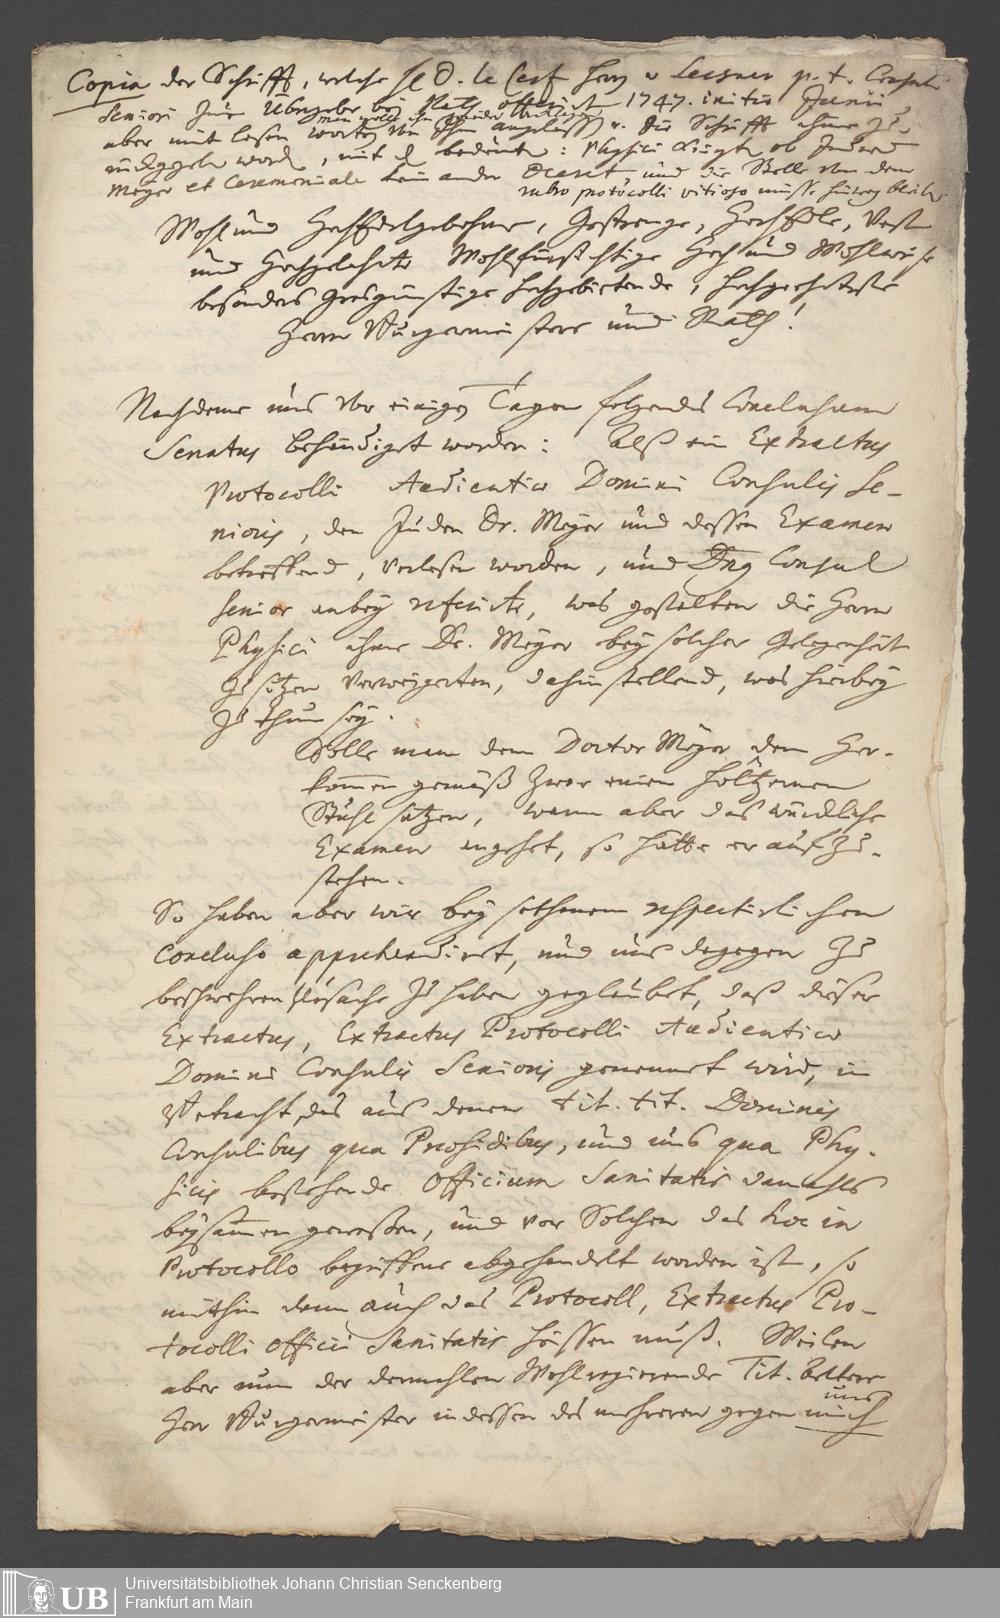 Copia der Schrifft, welche H. D. le Cerf Herrn v Lersner p. t. Consuli
Seniori zur Übergabe bey Rath offerirt 1747. initio Junii
aber mit lesen worten von Ihm angelassen u. die Schrifft ihme zu-
rückgegeben worden, mit d bedeuten: Physici
Meyer et Ceremoniale kein ander Decret und die Stelle von dem
rubro protocolli vitioso müsse hinweg bleiben
Wohl und HochEdelgebohrne, Gestrenge, HochEdle, Vest
und Hochgelahrte Wohlfürsichtige Hoch und Wohlweise
besonders Grosgünstige Hochgebietende, Hochgeehrteste
Herrn Burgermeistere und Rath!
Nachdeme uns vor einigen Tagen folgendes Conclusum
Senatus behändiget worden: Alß ein Extractus
Protocolli Audientiae Domini Consulis Se-
nioris, den Juden Dr. Meyer und dessen Examen
betreffend, verlesen worden, und Dns Consul
Senior anbey referirte, was gestalten die Herrn
Physici ihme Dr. Meyer bey solcher Gelegenheit
zu sitzen verweigerten, dahinstellend, was hierbey
zu thun sey.
Solle man dem Doctor Meyer dem Her-
kommen gemäß zwar einen höltzernen
Stuhl setzen, wann aber das würckliche
Examen angehet, so hätte er aufzu-
stehen.
So haben aber wir bey sothanem respectirlichen
Concluso apprehendiret, und uns dagegen zu
beschwehren Uhrsache zu haben geglaubet, daß dieser
Extractus, Extractus Protocolli Audientiae
Domini Consulis Senioris genennet wird, in
Betracht, das aus denen tit. tit. Dominis
Consulibus qua Praesidibus, und uns qua Phy-
sicis bestehende Officium Sanitatis damahls
beysammen gewesen, und vor Solchen das hoc in
Protocollo begriffene abgehandelt worden ist, so
mithin dann auch das Protocoll, Extractus Pro-
tocolli officii Sanitatis heissen muß. Weilen
aber nun der dermahlen Wohlregierende Tit. Ältere
Herr Burgermeister indessen des mehreren gegen mich
uns
UB
Universitätsbibliothek Johann Christian Senckenberg
Frankfurt am Main